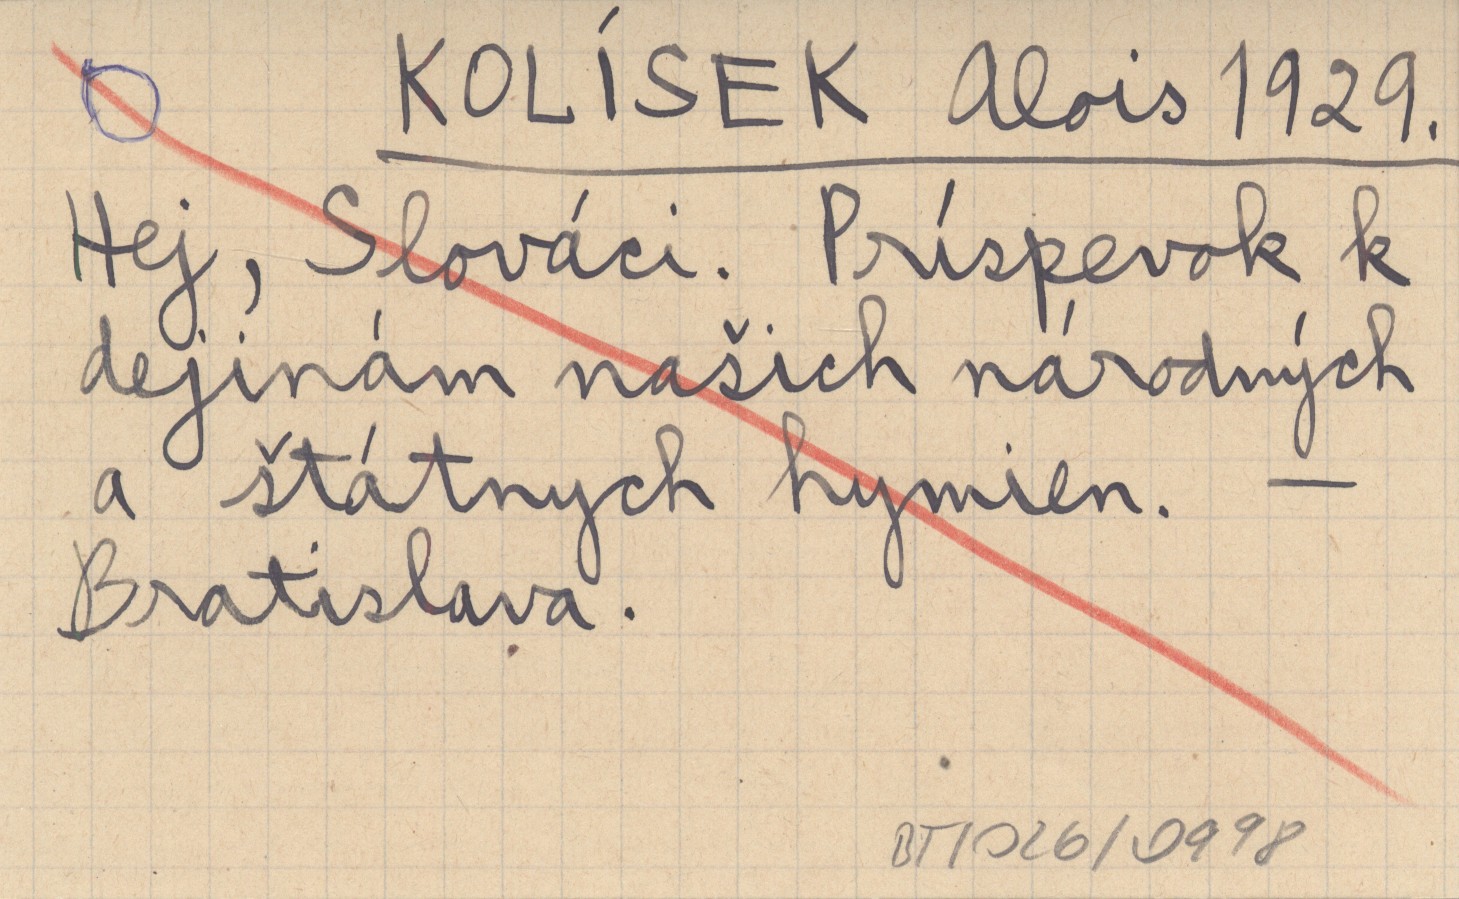 KOLÍSEK Alois 1929.
Hej, Slováci. Príspevok k
dejinám našich národných
a štátnych hymien. —
Bratislava.
BT/026/0998